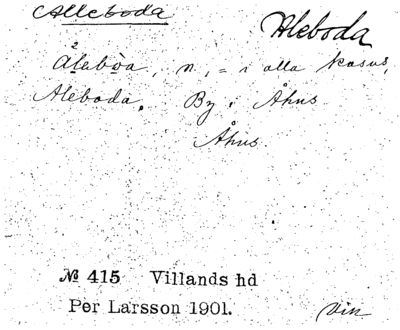 Alleboda
Aleboda
Åleboa, n, = i alla kasus,
Aleboda. By i Åhus
Åhus.
№ 415 Villands hd
Per Larsson 1901.